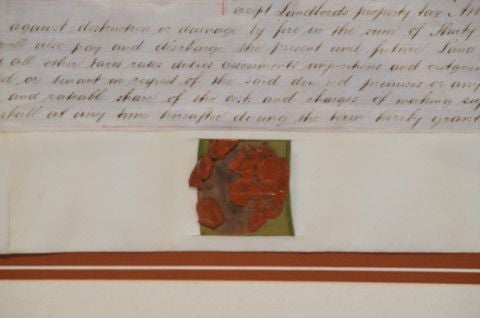 except Landlords property tax And
against destruction or damage by fire in the sum of Thirty
well also pay and discharge the present and future Land
all other taxes rates duties assessments impositions and outgoin
d or tenant in respect of the said demised premises or any
and rateable share of the costs and charges of making
shall at any time hereafter during the term hereby grant